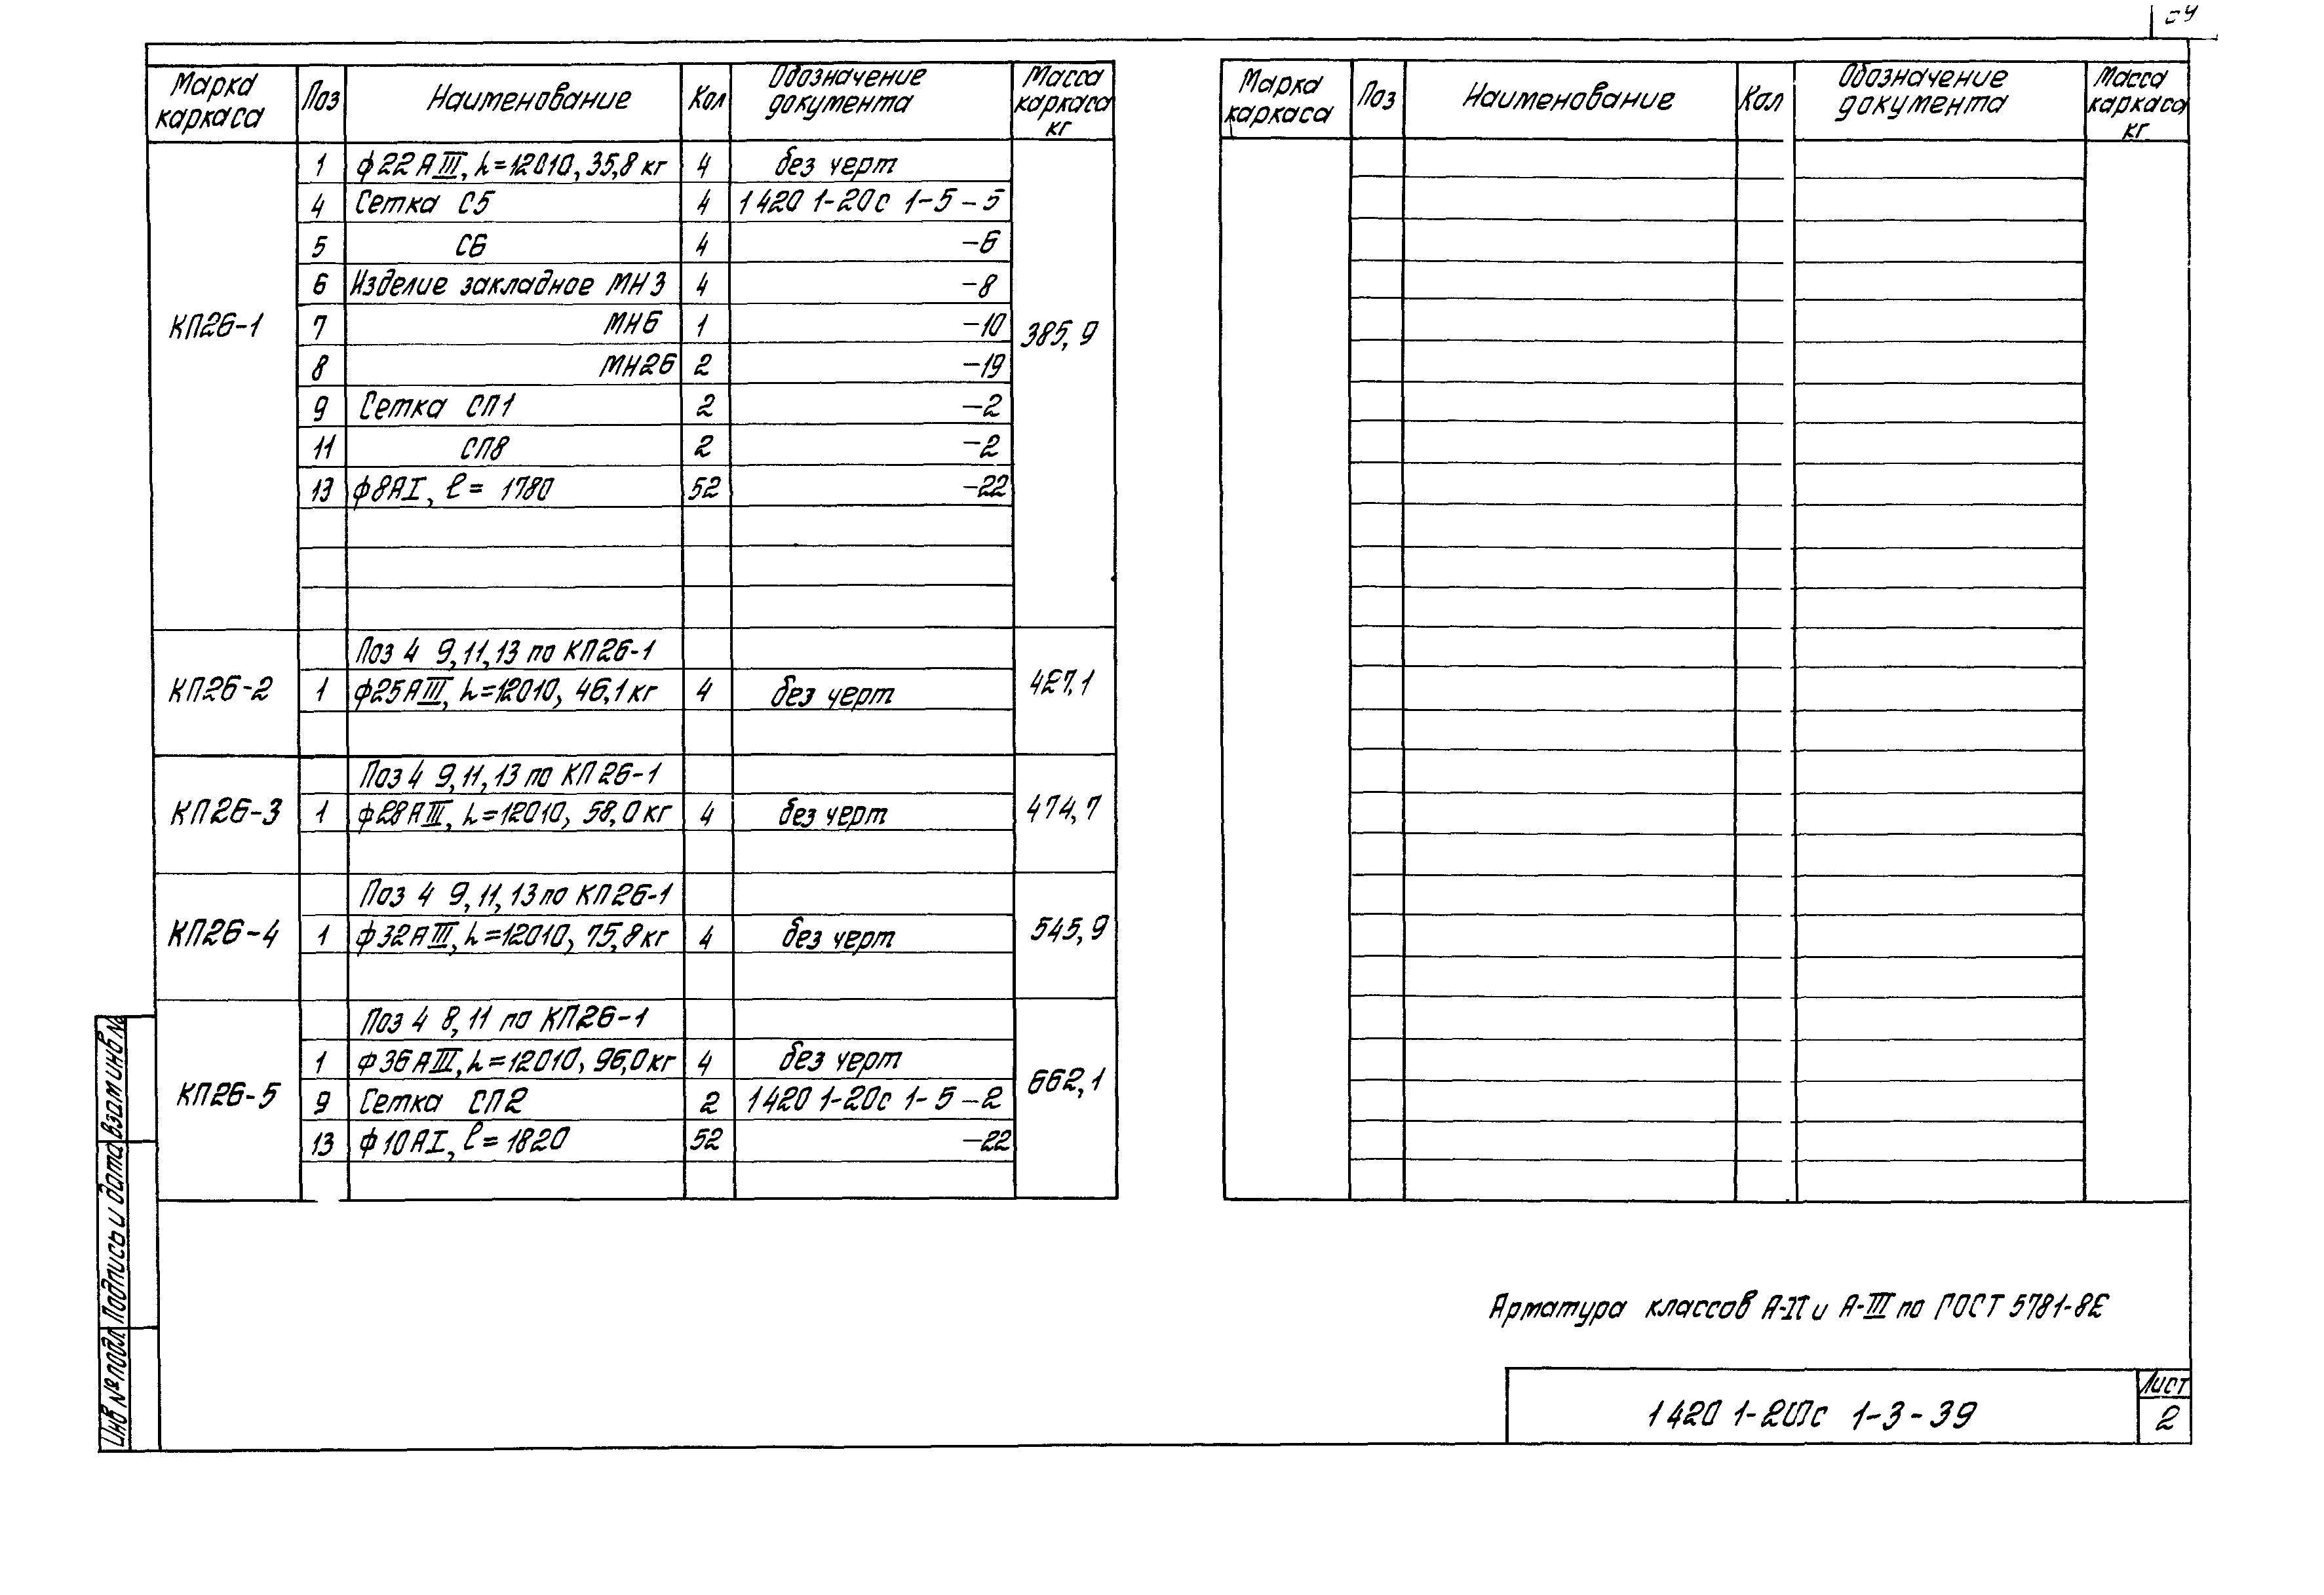 Марка каркаса | Поз | Наименование | Кол | Обозначение документа | Масса каркаса кг
КП26-1 | 385,9
1 | ф22АIII, L=12010, 35,8 кг | 4 | без черт
4 | Сетка С5 | 4 | 1 420 1-20с 1-5-5
5 | С6 | 4 | -6
6 | Изделие закладное МН3 | 4 | -8
7 | МН6 | 1 | -10
8 | МН26 | 2 | -19
9 | Сетка СП1 | 2 | -2
11 | СП8 | 2 | -2
13 | ф8АI, ℓ= 1780 | 52 | -22
КП26-2 | 427,1
Поз 4 9,11,13 по КП26-1
1 | ф25АIII, L=12010, 46,1 кг | 4 | без черт
КП26-3 | 474,7
Поз 4 9,11,13 по КП26-1
1 | ф28АIII, L=12010, 58,0 кг | 4 | без черт
КП26-4 | 545,9
Поз 4 9,11,13 по КП26-1
1 | ф32АIII, L=12010, 75,8 кг | 4 | без черт
КП26-5 | 662,1
Поз 4 8,11 по КП26-1
1 | ф36АIII, L=12010, 96,0 кг | 4 | без черт
9 | Сетка СП2 | 2 | 1 420 1-20с 1-5-2
13 | ф10АI, ℓ=1820 | 52 | -22
Марка каркаса | Поз | Наименование | Кол | Обозначение документа | Масса каркаса, кг
Взам инв №
Подпись и дата
Инв № подл
Арматура классов А-II и А-III по ГОСТ 5781-82
1 420 1-20с 1-3-39
Лист
2